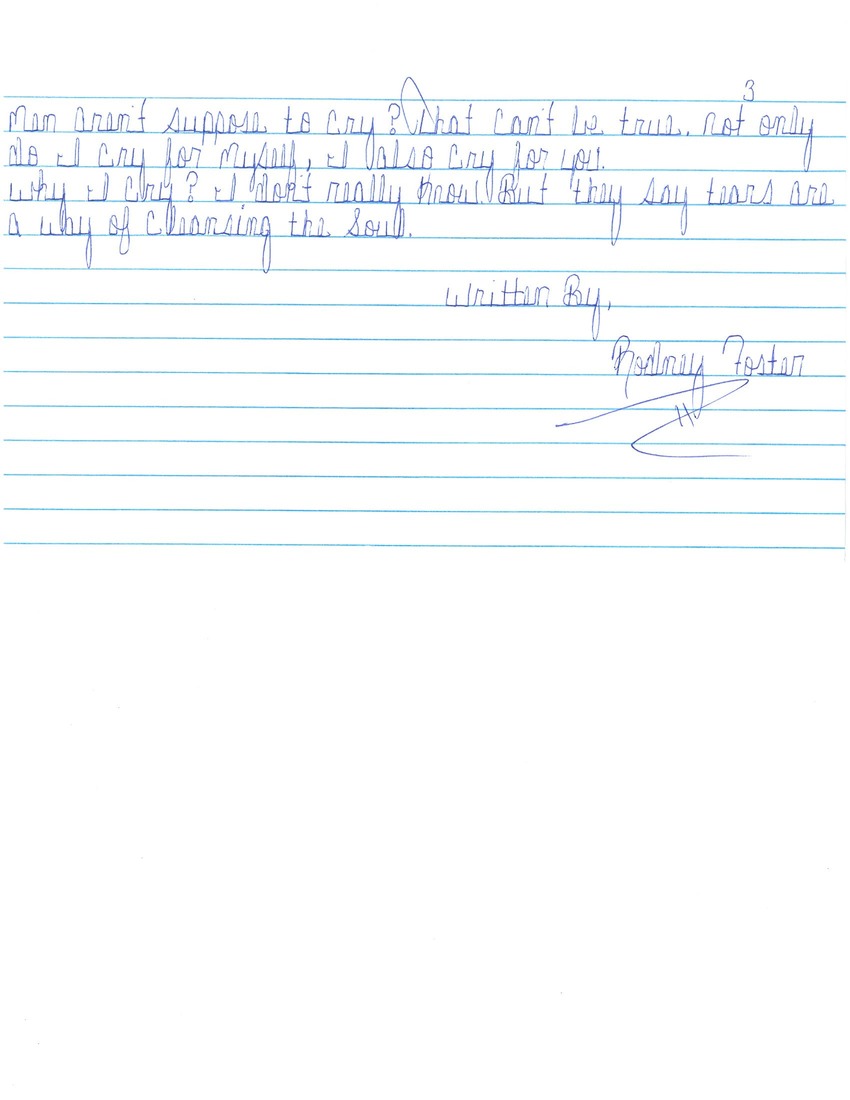 3
Men aren't suppose to cry? That can't be true. not only
do I cry for myself, I also cry for you.
why I cry? I don't really know. But they say tears are
a way of cleansing the soul.
written By,
Rodney Foster